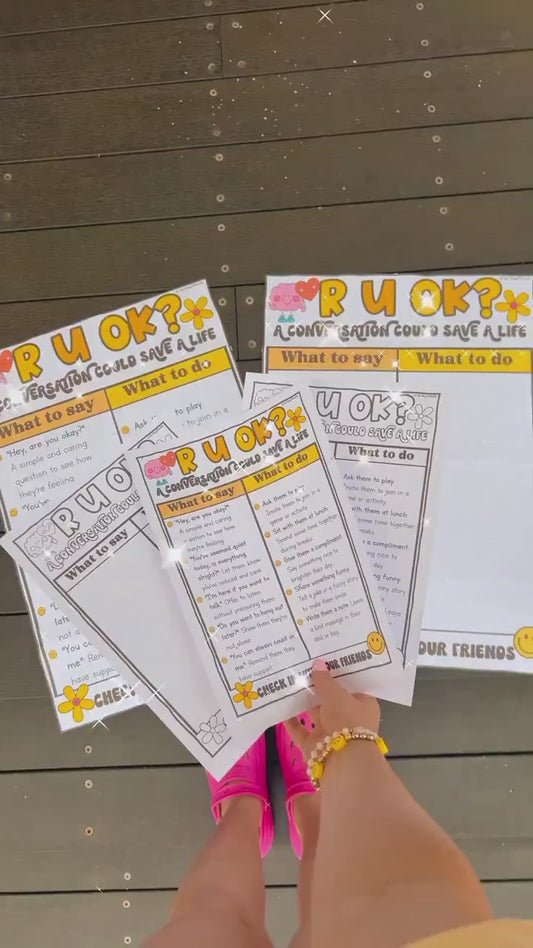 R U OK?
A CONVERSATION COULD SAVE A LIFE
What to say
What to do
"Hey, are you okay?"
A simple and caring
question to see how
they're feeling
"You've
late
not a
me" Rem
have suppo
Ask to play
to join in a
CHEC
R U OK?
A CONVERSATION COULD SAVE A LIFE
What to say
What to do
OUR FRIENDS
R U O
A CONVERSATION
What to say
U OK?
COULD SAVE A LIFE
What to do
Ask them to play
Invite them to join in a
me or activity
with them at lunch
some time together
reaks
a compliment
ing nice to
day
ing funny
ny story
Leave
R U OK?
A CONVERSATION COULD SAVE A LIFE
What to say
What to do
"Hey, are you okay?"
A simple and caring
question to see how
they're feeling
"You've seemed quiet
today, is everything
alright?" Let them know
you've noticed and care
"I'm here if you want to
talk." Offer to listen
without pressuring them
"Do you want to hang out
later?" Show them they're
not alone
"You can always count on
me" Remind them they
have support
Ask them to play
Invite them to join in a
game or activity
Sit with them at lunch
Spend some time together
during breaks
Give them a compliment
Say something nice to
brighten their day
Share something funny
Tell a joke or a funny story
to make them smile
Write them a note Leave
a kind message in their
desk or bag
CHECK IN YOUR FRIENDS